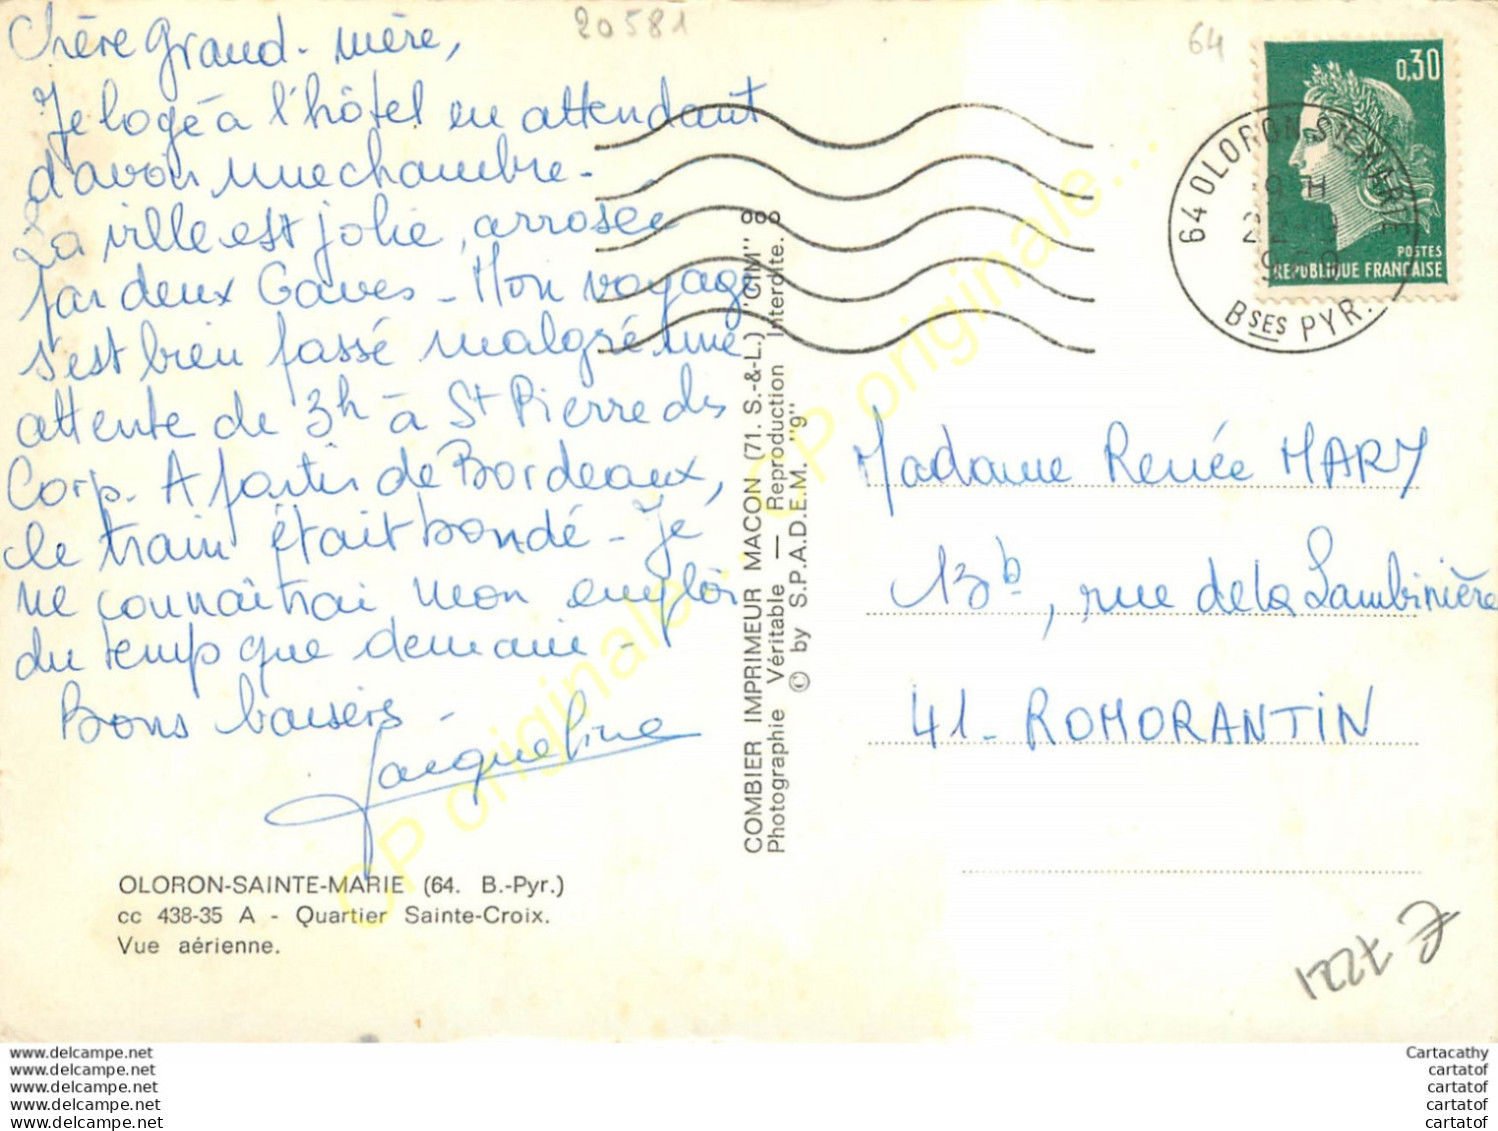 20581
64
Chère Grand-mère,
Je loge à l'hôtel en attendant
d'avoir une chambre.
La ville est jolie, arrosée
par deux Gaves - Mon voyage
s'est bien passé malgré une
attente de 3h à St Pierre des
Corp. A partir de Bordeaux,
le train était bondé - Je
ne connaîtrai mon emploi
du temps que demain -
Bons baisers -
Jacqueline
OLORON-SAINTE-MARIE (64. B.-Pyr.)
cc 438-35 A - Quartier Sainte-Croix.
Vue aérienne.
COMBIER IMPRIMEUR MACON (71. S.-&-L.) "CIM"
Photographie Véritable — Reproduction Interdite.
© by S.P.A.D.E.M. "9"
0,30
POSTES
REPUBLIQUE FRANÇAISE
64 OLORON STE MARIE
Bses PYR.
Madame Renée MARY
13b, rue de la Lambinière
41 - ROMORANTIN
CP originale...
www.delcampe.net
www.delcampe.net
www.delcampe.net
www.delcampe.net
www.delcampe.net
Cartacathy
cartatof
cartatof
cartatof
cartatof